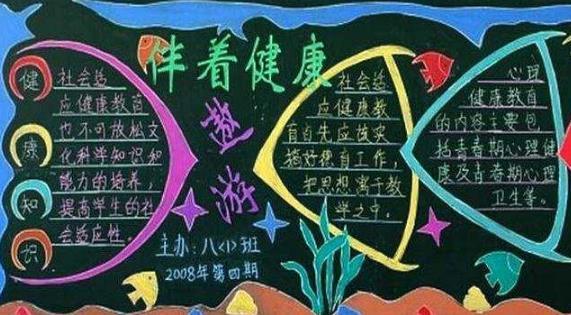 伴着健康
遨游
健
康
知
识
社会适
应健康教育
也不可放松文
化科学知识和
能力的培养,
提高学生的社
会适应性。
主办:八<1>班
2008年第四期
社会适
应健康教
育首先应该实
把思想寓于教
学之中。
心理
健康教育
的内容主要包
括青春期心理健
康及青春期心理
卫生等。